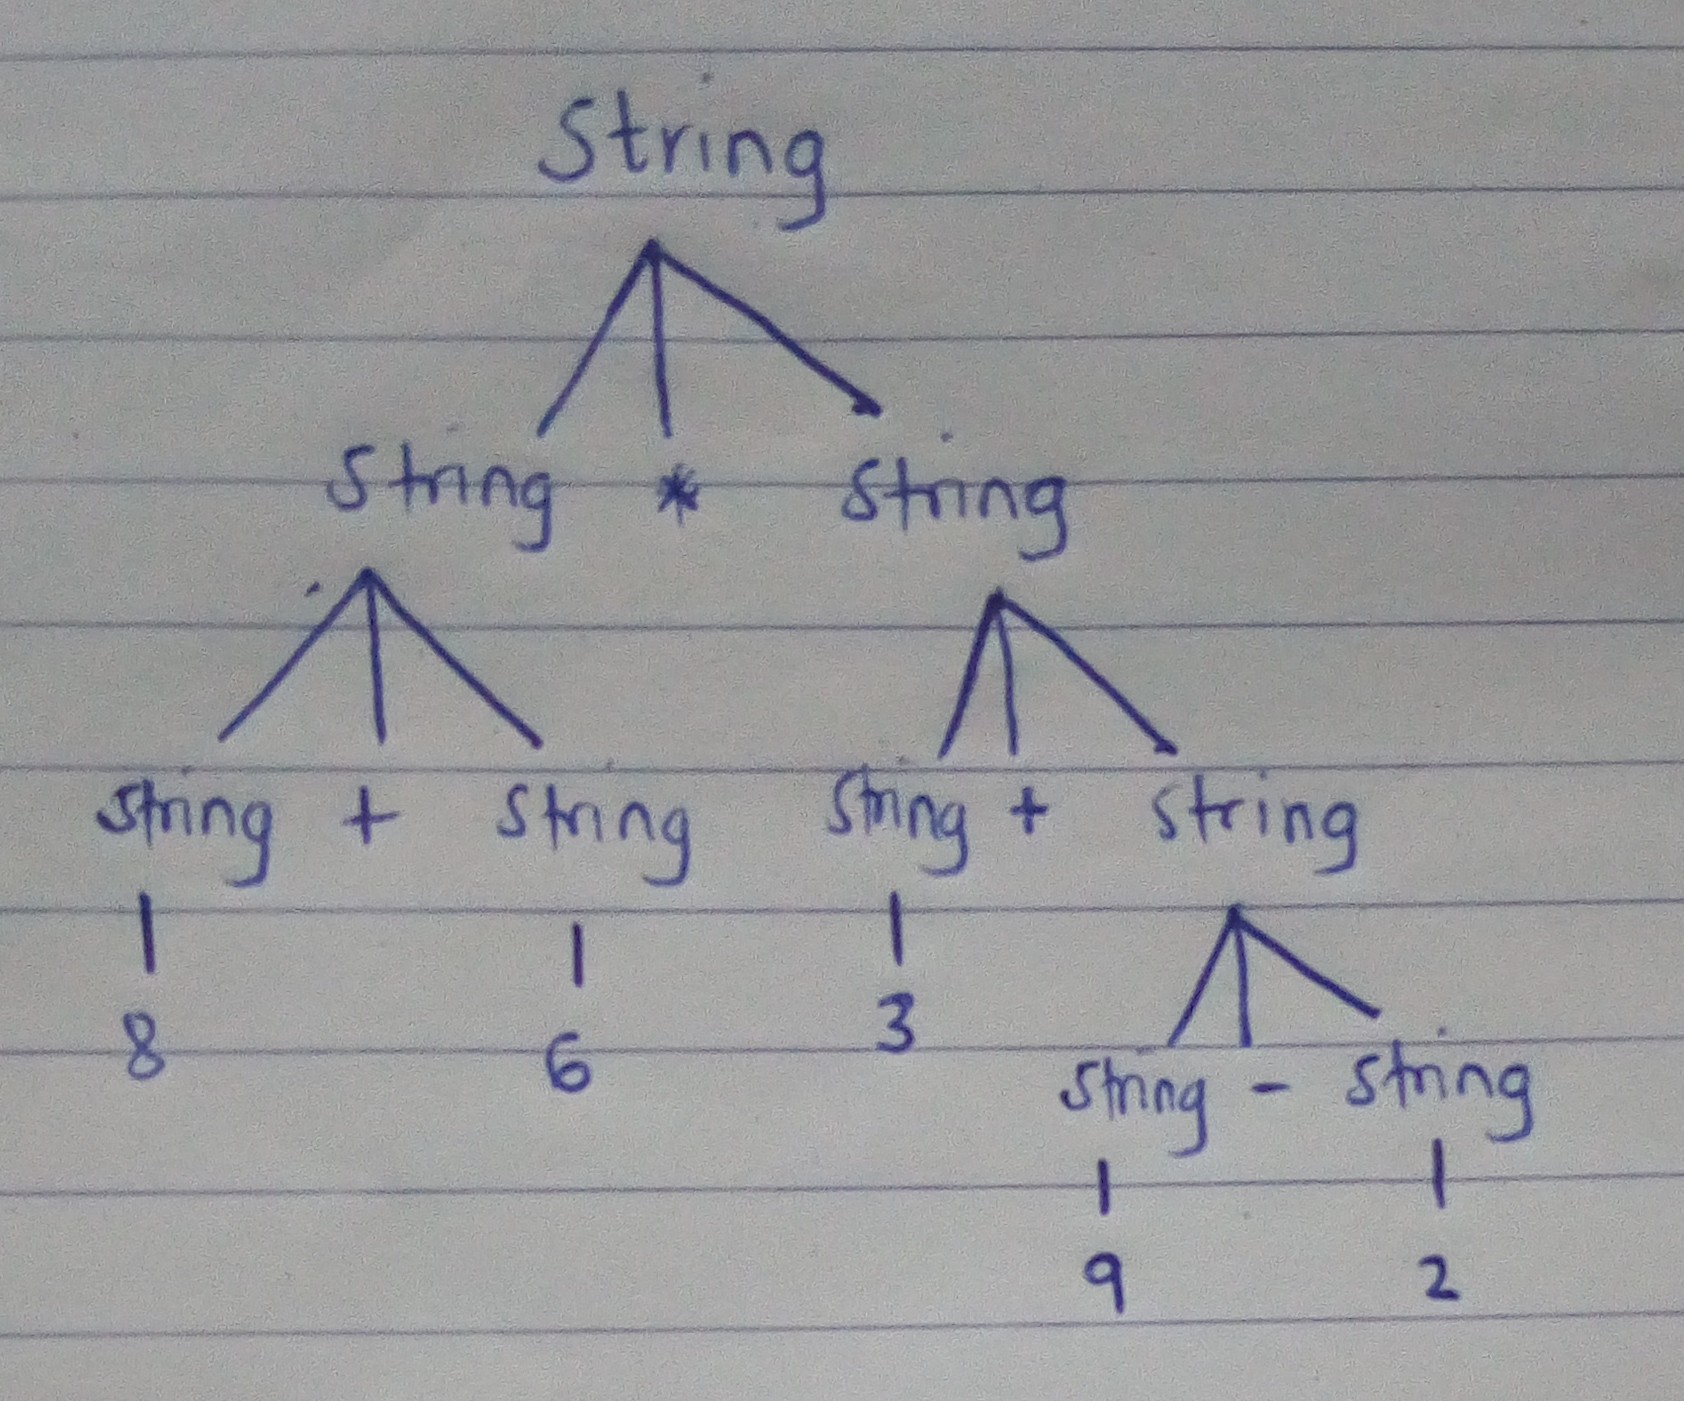 String
String * String
String + String String + String
8 6 3
String - String
9 2